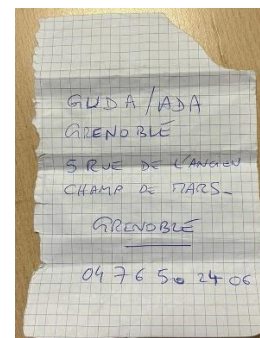 GUDA/ADA
GRENOBLE
5 RUE DE L'ANCIEN
CHAMP DE MARS_
GRENOBLE
04 76 50 24 06